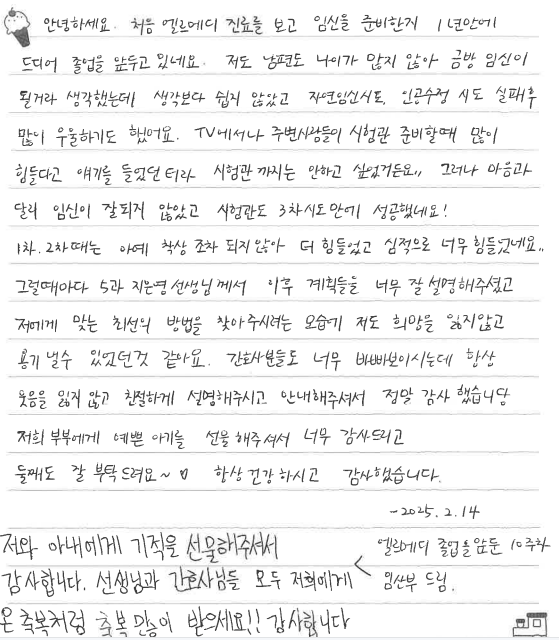 안녕하세요. 처음 엘르메디 진료를 보고 임신을 준비한지 1년만에
드디어 졸업을 앞두고 있네요. 저도 남편도 나이가 많지 않아 금방 임신이
될거라 생각했는데 생각보다 쉽지 않았고 자연임신시도, 인공수정 시도 실패후
많이 우울하기도 했어요. TV에서나 주변사람들이 시험관 준비할때 많이
힘들다고 얘기를 들었던터라 시험관 까지는 안하고 싶었거든요,, 그러나 마음과
달리 임신이 잘되지 않았고 시험관도 3차시도만에 성공했네요!
1차, 2차때는 아예 착상 조차 되지않아 더 힘들었고 심적으로 너무 힘들었네요..
그럴때마다 5과 지은영 선생님께서 이후 계획들을 너무 잘 설명해주셨고
저에게 맞는 최선의 방법을 찾아주시려는 모습에 저도 희망을 잃지않고
용기 낼수 있었던것 같아요. 간호사분들도 너무 바빠보이시는데 항상
웃음을 잃지 않고 친절하게 설명해주시고 안내해주셔서 정말 감사했습니당
저희 부부에게 예쁜 아기를 선물해주셔서 너무 감사드리고
둘째도 잘 부탁드려요~♡ 항상 건강하시고 감사했습니다.
-2025. 2. 14
저와 아내에게 기적을 선물해주셔서
감사합니다. 선생님과 간호사님들 모두 저희에게
온 축복처럼 축복 만둥이 받으세요!! 감사합니다
< 엘르메디 졸업을 앞둔 10주차
임산부 드림.